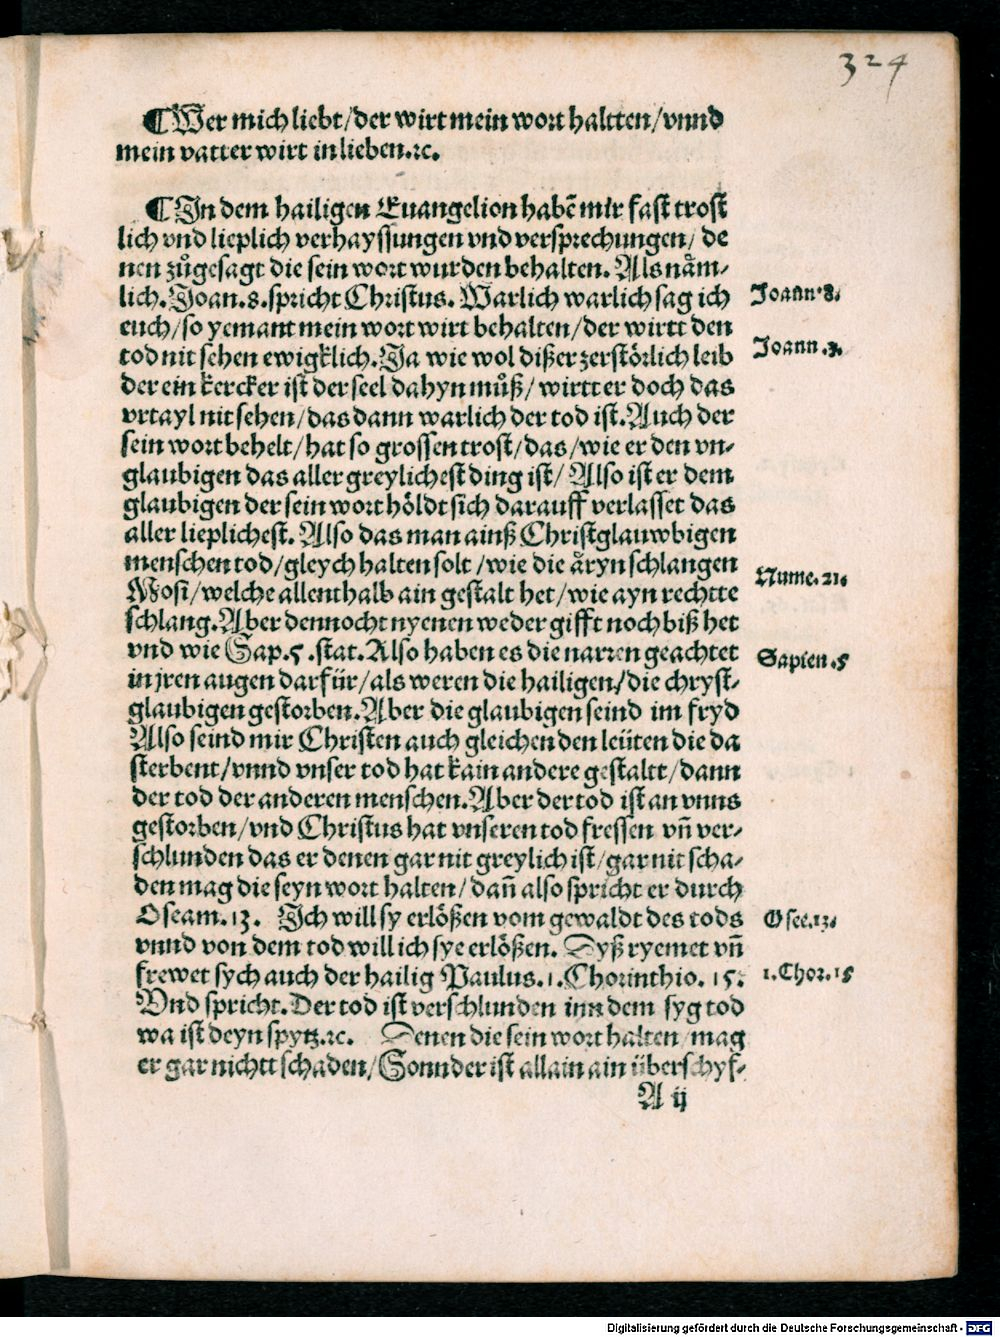 324
¶ Wer mich liebt/der wirt mein wort haltten/vnnd
mein vatter wirt in lieben.ꝛc.
¶ In dem hailigen Euangelion habē mir fast trost
lich vnd lieplich verhayssungen vnd versprechungen/ de
nen zůgesagt die sein wort wurden behalten. Als nåm-
lich. Joan.8.spricht Christus. Warlich warlich sag ich
euch/so yemant mein wort wirt behalten/der wirtt den
tod nit sehen ewigklich. Ja wie wol dißer zerstörlich leib
der ein kercker ist der seel dahyn můß/ wirtt er doch das
vrtayl nit sehen/das dann warlich der tod ist. Auch der
sein wort behelt/hat so grossen trost/das/wie er den vn-
glaubigen das aller greylichest ding ist/ Also ist er dem
glaubigen der sein wort höldt sich darauff verlasset das
aller lieplichest. Also das man ainß Christglauwbigen
menschen tod/gleych halten solt/wie die åryn schlangen
Mosi/welche allenthalb ain gestalt het/wie ayn rechtte
schlang. Aber dennocht nyenen weder gifft noch biß het
vnd wie Sap.5.stat. Also haben es die narren geachtet
in jren augen darfür/als weren die hailigen/die chryst-
glaubigen gestorben. Aber die glaubigen seind im fryd
Also seind mir Christen auch gleichen den leüten die da
sterbent/vnnd vnser tod hat kain andere gestaltt/dann
der tod der anderen menschen. Aber der tod ist an vnns
gestorben/vnd Christus hat vnseren tod fressen vñ ver-
schlunden das er denen gar nit greylich ist/gar nit scha-
den mag die seyn wort halten/dañ also spricht er durch
Oseam.13. Ich will sy erlößen vom gewaldt des tods
vnnd von dem tod will ich sye erlößen. Dyß ryemet vñ
frewet sych auch der hailig Paulus.1.Chorinthio.15.
Vnd spricht. Der tod ist verschlunden inn dem syg tod
wa ist deyn spytz.ꝛc. Denen die sein wort halten/mag
er gar nichtt schaden/Sonnder ist allain ain überschyf-
A ij
Joann.8.
Joann.3.
Nume.21.
Sapien.5
Osee.13.
1.Chor.15
Digitalisierung gefördert durch die Deutsche Forschungsgemeinschaft - DFG